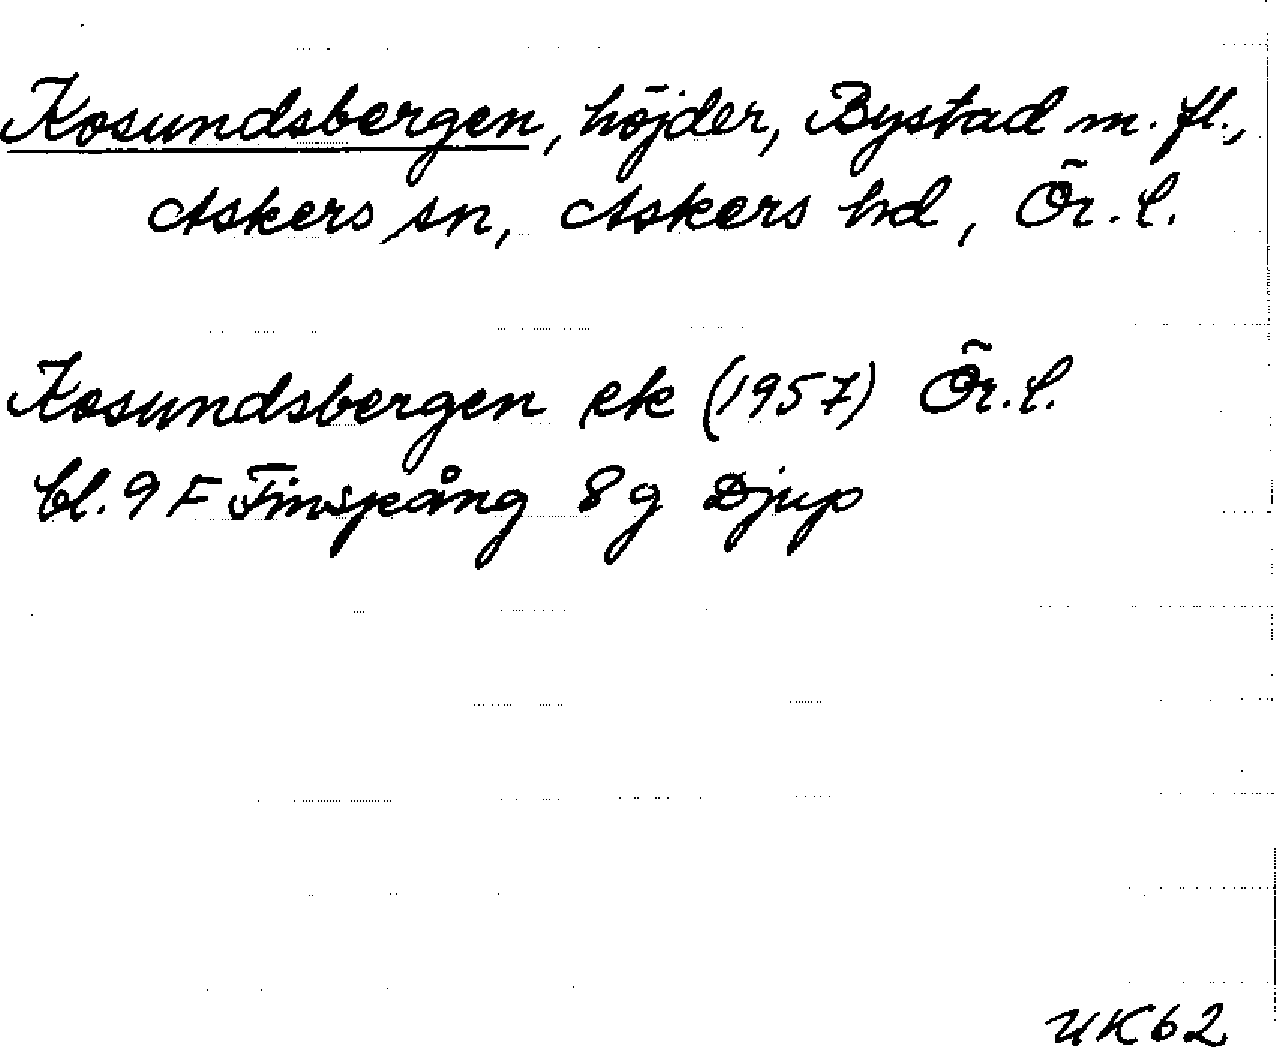 Kosundsbergen, höjder, Bystad m. fl.,
Askers sn, Askers hd, Ör. l.
Kosundsbergen ek (1957) Ör. l.
bl. 9 F Finspång 8 g Djup
UK62